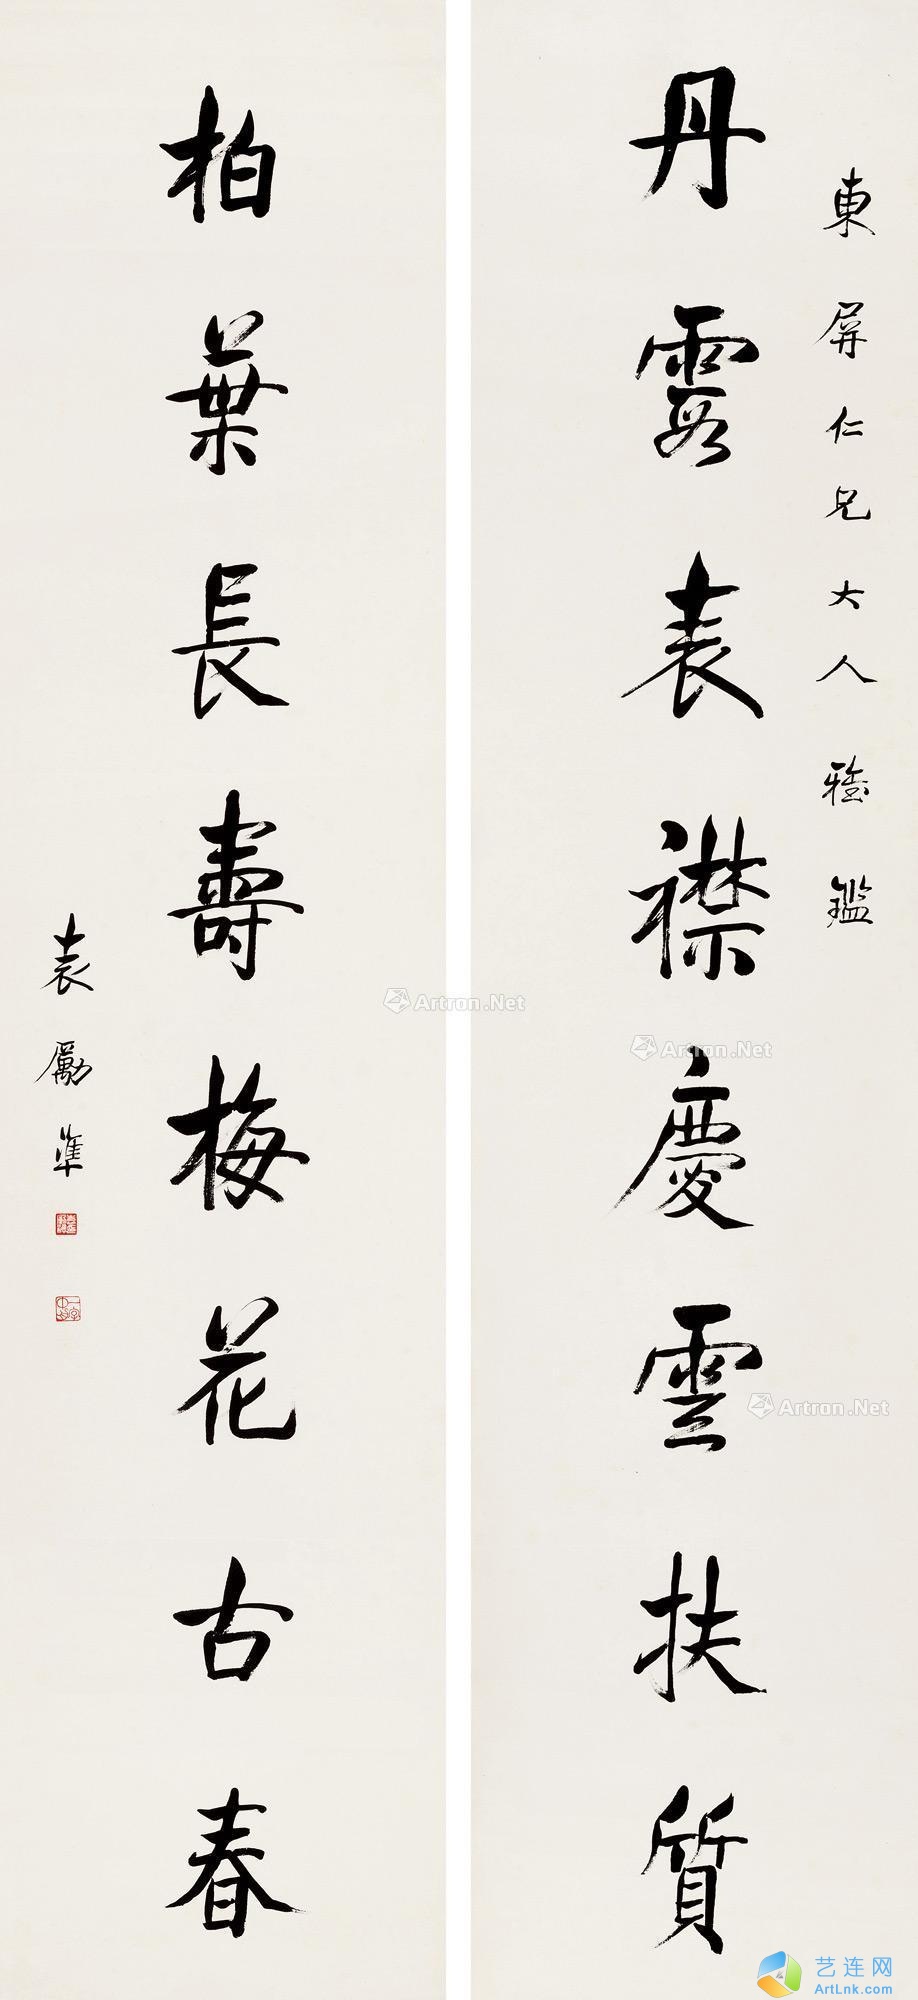 東屏仁兄大人雅鑑
丹霞表襟慶雲扶質
柏葉長壽梅花古春
袁勵準
Artron.Net
Artron.Net
Artron.Net
艺连网
ArtLnk.com